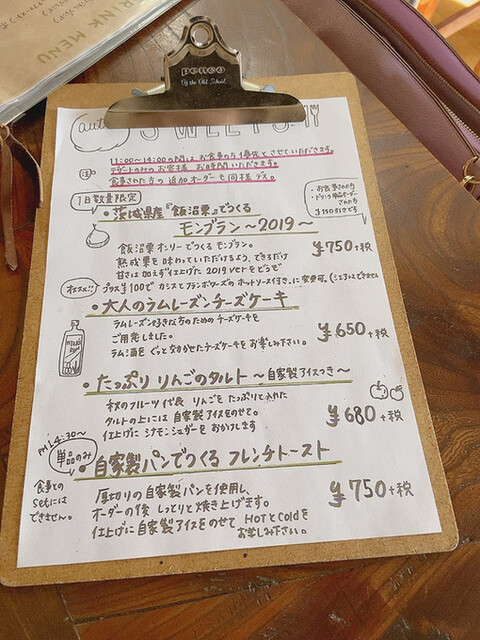 DRINK MENU
penco
Of the Old School
aut
SWEETS
11:00〜14:00の間は、お食事の方優先とさせていただきます。
デザートのみのお客様、お時間いただきます。
食事された方の追加オーダーも同様デス。
1日数量限定
・茨城県産『飯沼栗』でつくる
モンブラン 〜2019〜
・お食事された方
・ドリンク単品オーダー
された方
¥150引きです
飯沼栗オンリーでつくるモンブラン。
熟成栗を味わっていただけるよう、できるだけ
甘さは加えず仕上げた2019verをどうぞ
¥750+税
オススメ!!
プラス¥100でカシスとフランボワーズのホットソース付きに変更可。
・大人のラムレーズンチーズケーキ
ラムレーズン好きな方のためのチーズケーキを
ご用意しました。
ラム酒をぐっと効かせたチーズケーキをお楽しみ下さい。
¥650+税
・たっぷりりんごのタルト 〜自家製アイスつき〜
秋のフルーツ代表 りんごをたっぷりと入れた
タルトの上には自家製アイスをのせて。
仕上げにシナモンシュガーをおかけします
¥680+税
PM 14:30〜
単品のみ
・自家製パンでつくる フレンチトースト
食事との
setには
できません。
厚切りの自家製パンを使用し、
オーダーの後 しっとりと焼き上げます。
仕上げに自家製アイスをのせて HOTとColdを
お楽しみ下さい。
¥750+税